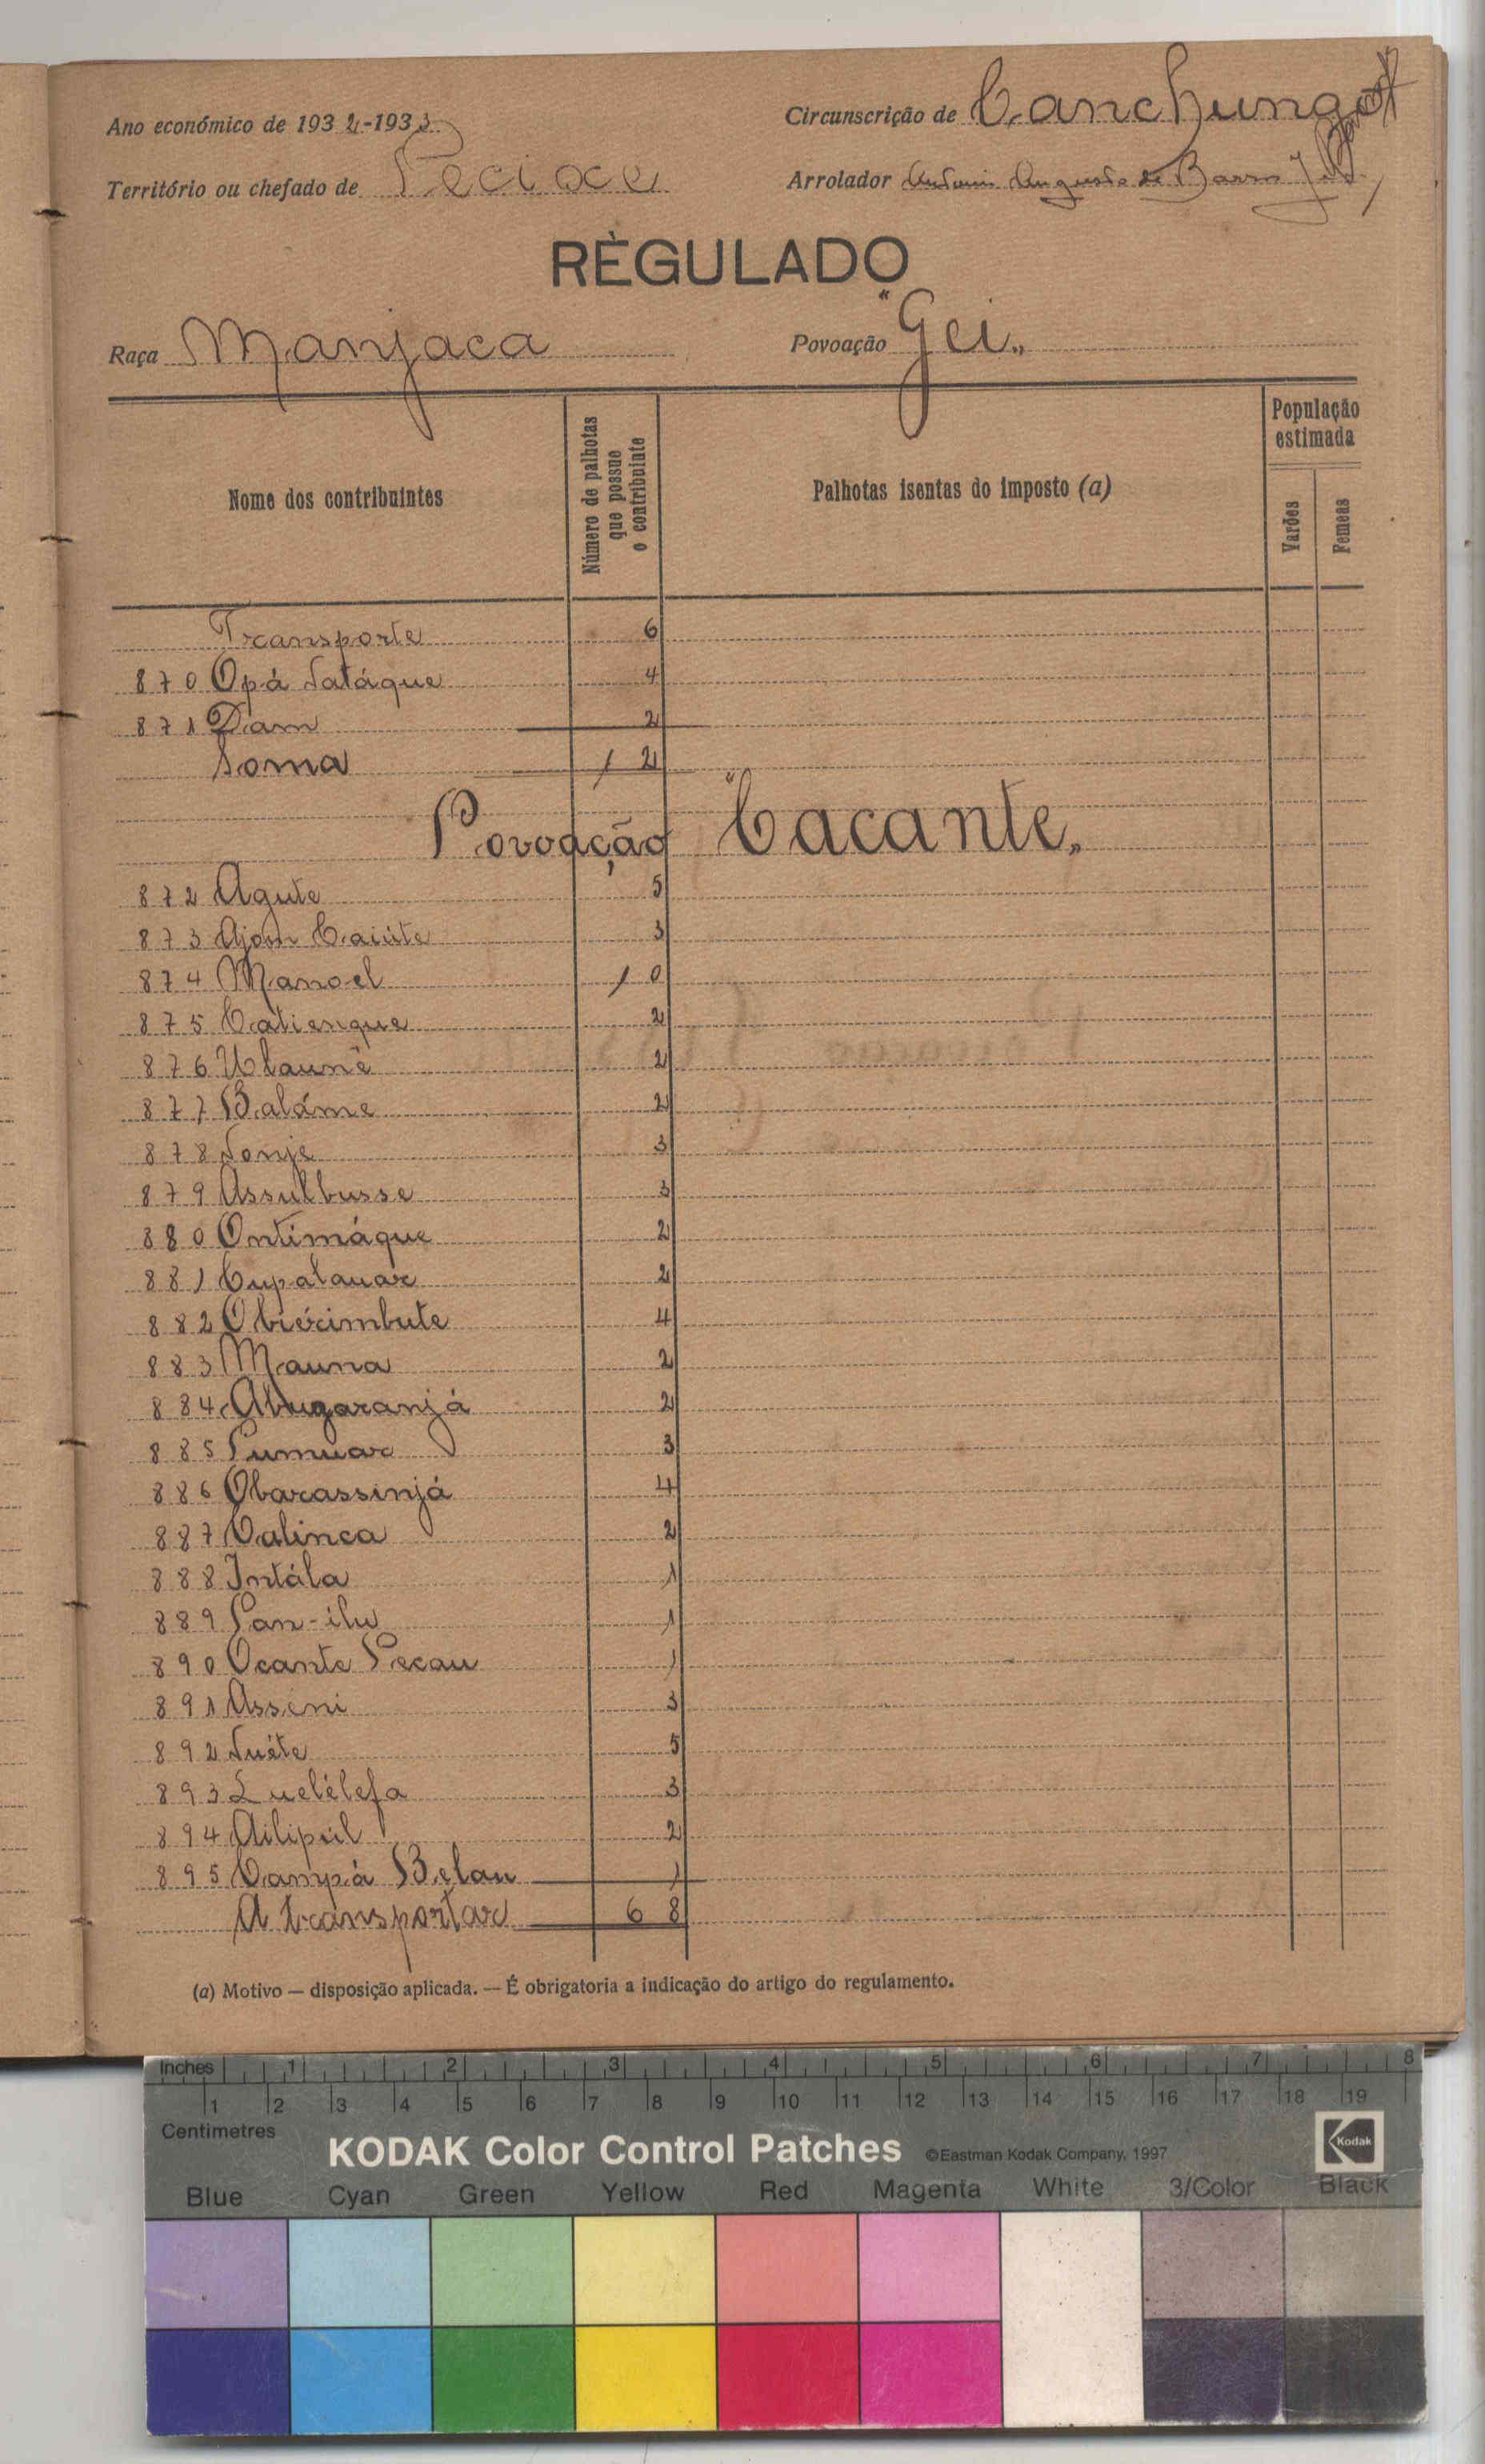 Ano económico de 1932-1933
Circunscrição de Canchungo
Território ou chefado de Pecixe
Arrolador Antonio Augusto de Barros
RÈGULADO
Raça Manjaca
Povoação "Gei"
Nome dos contribuintes
Número de palhotas que possue o contribuinte
Palhotas isentas do imposto (a)
População estimada
Varões
Femeas
Transporte 6
870 Opá Natáque 4
871 Dam 2
Soma 12
Povoação "Cacante"
872 Agute 5
873 Ajom Caiúte 3
874 Manoel 10
875 Catiengue 2
876 Ulaunê 2
877 Baláme 2
878 Nonje 3
879 Assulbusse 3
880 Ontimáque 2
881 Cupalauar 2
882 Obiécimbute 4
883 Mauna 2
884 Abugaranjá 2
885 Pumuar 3
886 Obarassinjá 4
887 Calinca 2
888 Intála 1
889 Pan-ilu 1
890 Ocante Pecau 1
891 Asseni 3
892 Nuéte 5
893 Luelélefa 3
894 Ailipúl 2
895 Campá Belau 1
A transportar 68
(a) Motivo — disposição aplicada. — É obrigatoria a indicação do artigo do regulamento.
Inches 1 2 3 4 5 6 7 8
1 2 3 4 5 6 7 8 9 10 11 12 13 14 15 16 17 18 19
Centimetres
KODAK Color Control Patches ©Eastman Kodak Company, 1997 Kodak
Blue Cyan Green Yellow Red Magenta White 3/Color Black